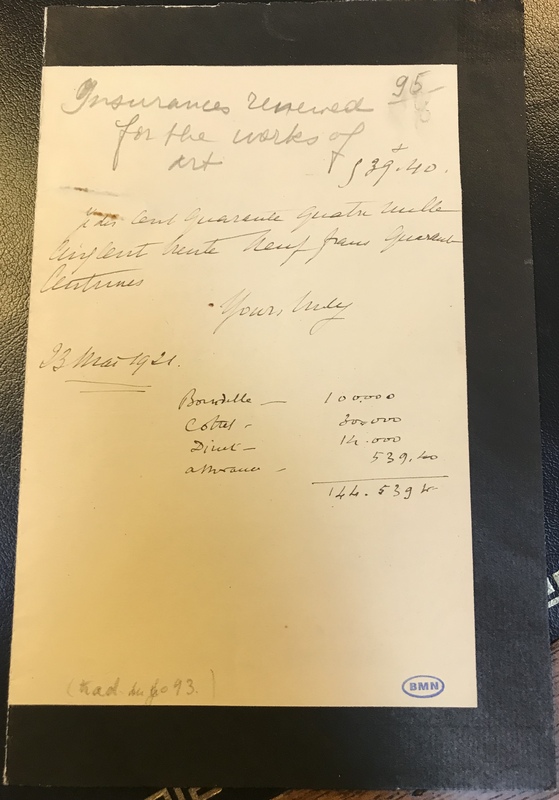 95
Insurances renewed
for the works of
art
539.40.
cent quarante quatre mille
cinq cent trente neuf francs quarante
Centimes
Yours truly
23 Mai 1921.
Bourdelle — 100000
Cottet -
Dinet — 14.000
assurance - 539.40
144.539 40
(trad. du fo 93.)
BMN